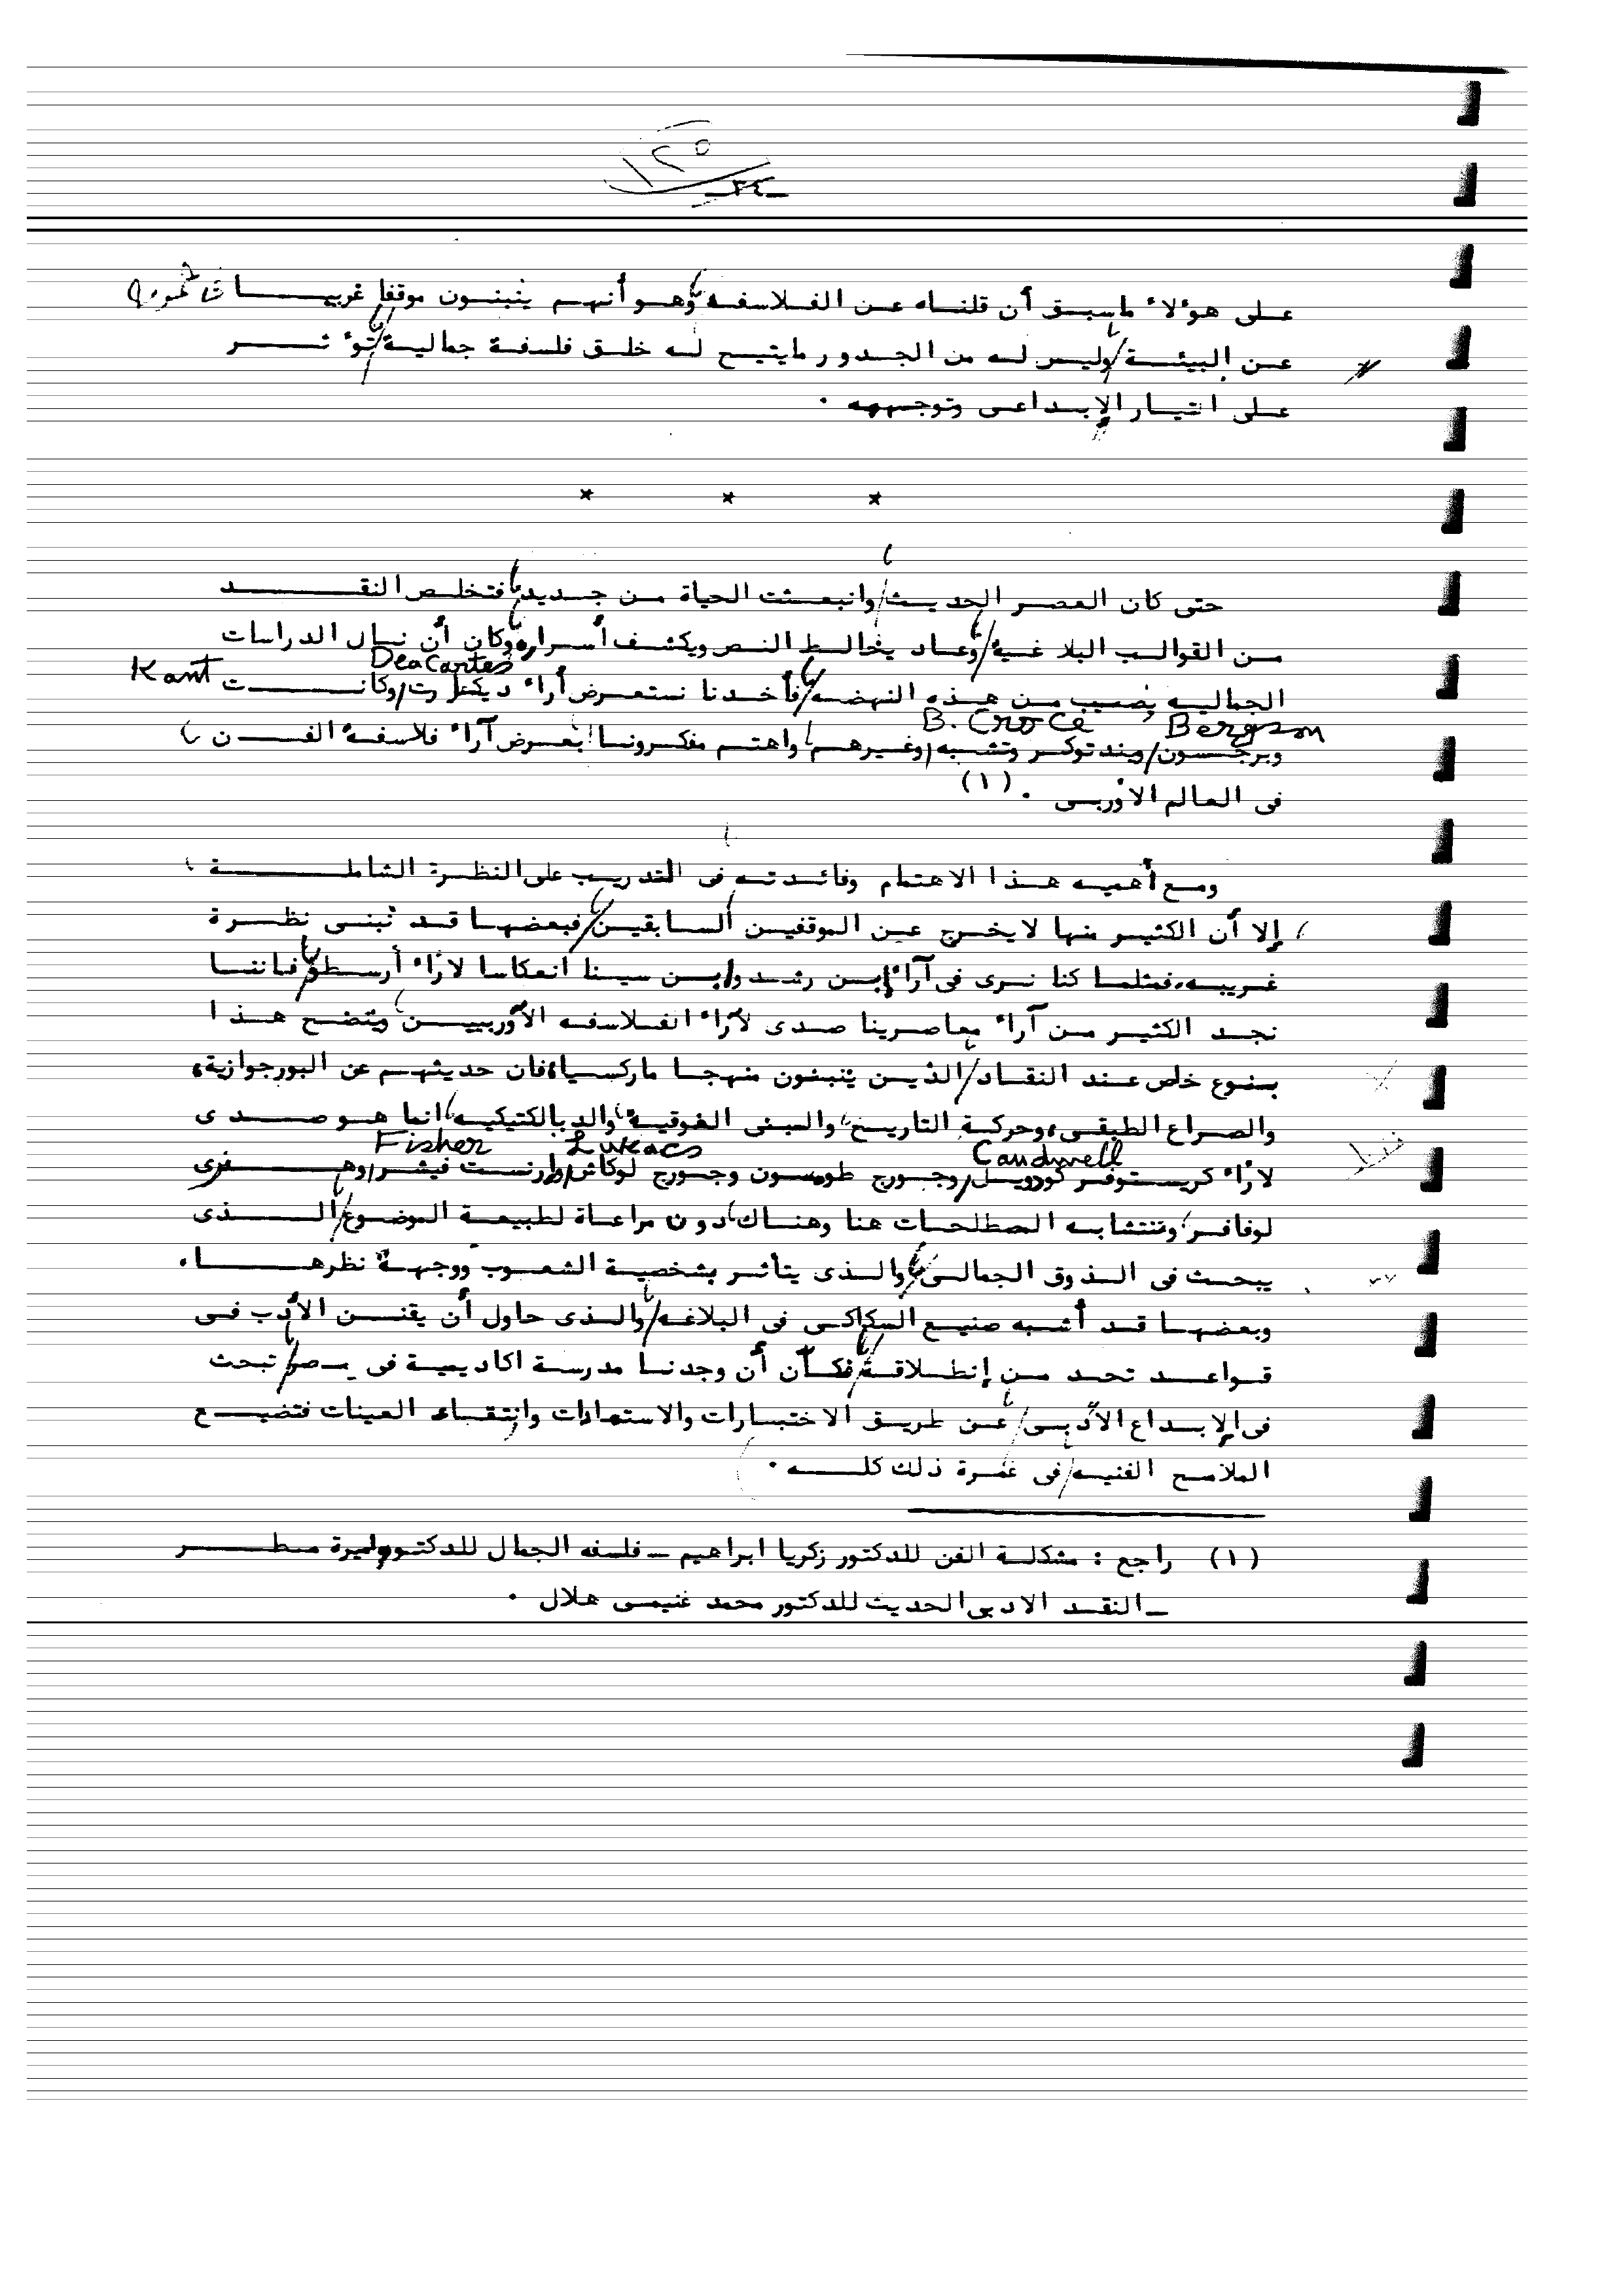 ١٢٥
ـ٣٤ـ
على هؤلاء ماسبق أن قلناه عن الفلاسفه، وهو أنهم يتبنون موقفا غريبا
عن البيئة، وليس له من الجدور مايتيح له خلق فلسفة جمالية، تؤثر
على التيار الإبداعى وتوجهه .
* * *
حتى كان العصر الحديث، وانبعثت الحياة من جديد، فتخلص النقد
من القوالب البلاغية، وعاد يخالط النص ويكشف أسراره، وكان أن نال الدراسات
Kant Deacartes
الجماليه نصيب من هذه النهضه، فأخدنا نستعرض أراء ديكارت، وكانت
B. Croce , Bergson
وبرجسون، وبندتوكر وتشبه، وغيرهم، واهتم مفكرونا بعرض آراء فلاسفة الفن
فى العالم الأوربى . (١)
ومع أهميه هذا الاهتمام وفائدته فى التدريب على النظرة الشاملة ،
إلا أن الكثير منها لايخرج عن الموقفين السابقين، فبعضها قد تبنى نظرة
غريبه، فمثلما كنا نرى فى آراء إبن رشد وابن سينا انعكاسا لآراء أرسطو، فاننا
نجد الكثير من آراء معاصرينا صدى لآراء الفلاسفه الأوربيين، ويتضح هذا
بنوع خاص عند النقاد، الذين يتبنون منهجا ماركسيا، فان حديثهم عن البورجوازية،
والصراع الطبقى، وحركة التاريخ، والمبنى الفوقية، والديالكتيكيه، انما هو صدى
Fisher Lukacs Caudwell
لآراء كريستوفر كودويل، وجورج طومسون وجورج لوكاش، وارنست فيشر، وهنرى
لوفافر، وتتشابه المصطلحات هنا وهناك، دون مراعاة لطبيعة الموضوع، الذى
يبحث فى الذوق الجمالى، والذى يتأثر بشخصية الشعوب ووجهة نظرها .
وبعضها قد أشبه صنيع السكاكى فى البلاغه، والذى حاول أن يقنن الأدب فى
قواعد تحد من إنطلاقة، فكان أن وجدنا مدرسة اكاديمية فى مصر، تبحث
فى الإبداع الأدبى، عن طريق الاختبارات والاستمارات وانتقاء العينات فتضيع
الملامح الفنيه، فى غمرة ذلك كله .
(١) راجع : مشكلة الفن للدكتور زكريا ابراهيم ــ فلسفه الجمال للدكتوره اميرة مطر
ــ النقد الادبى الحديث للدكتور محمد غنيمى هلال .